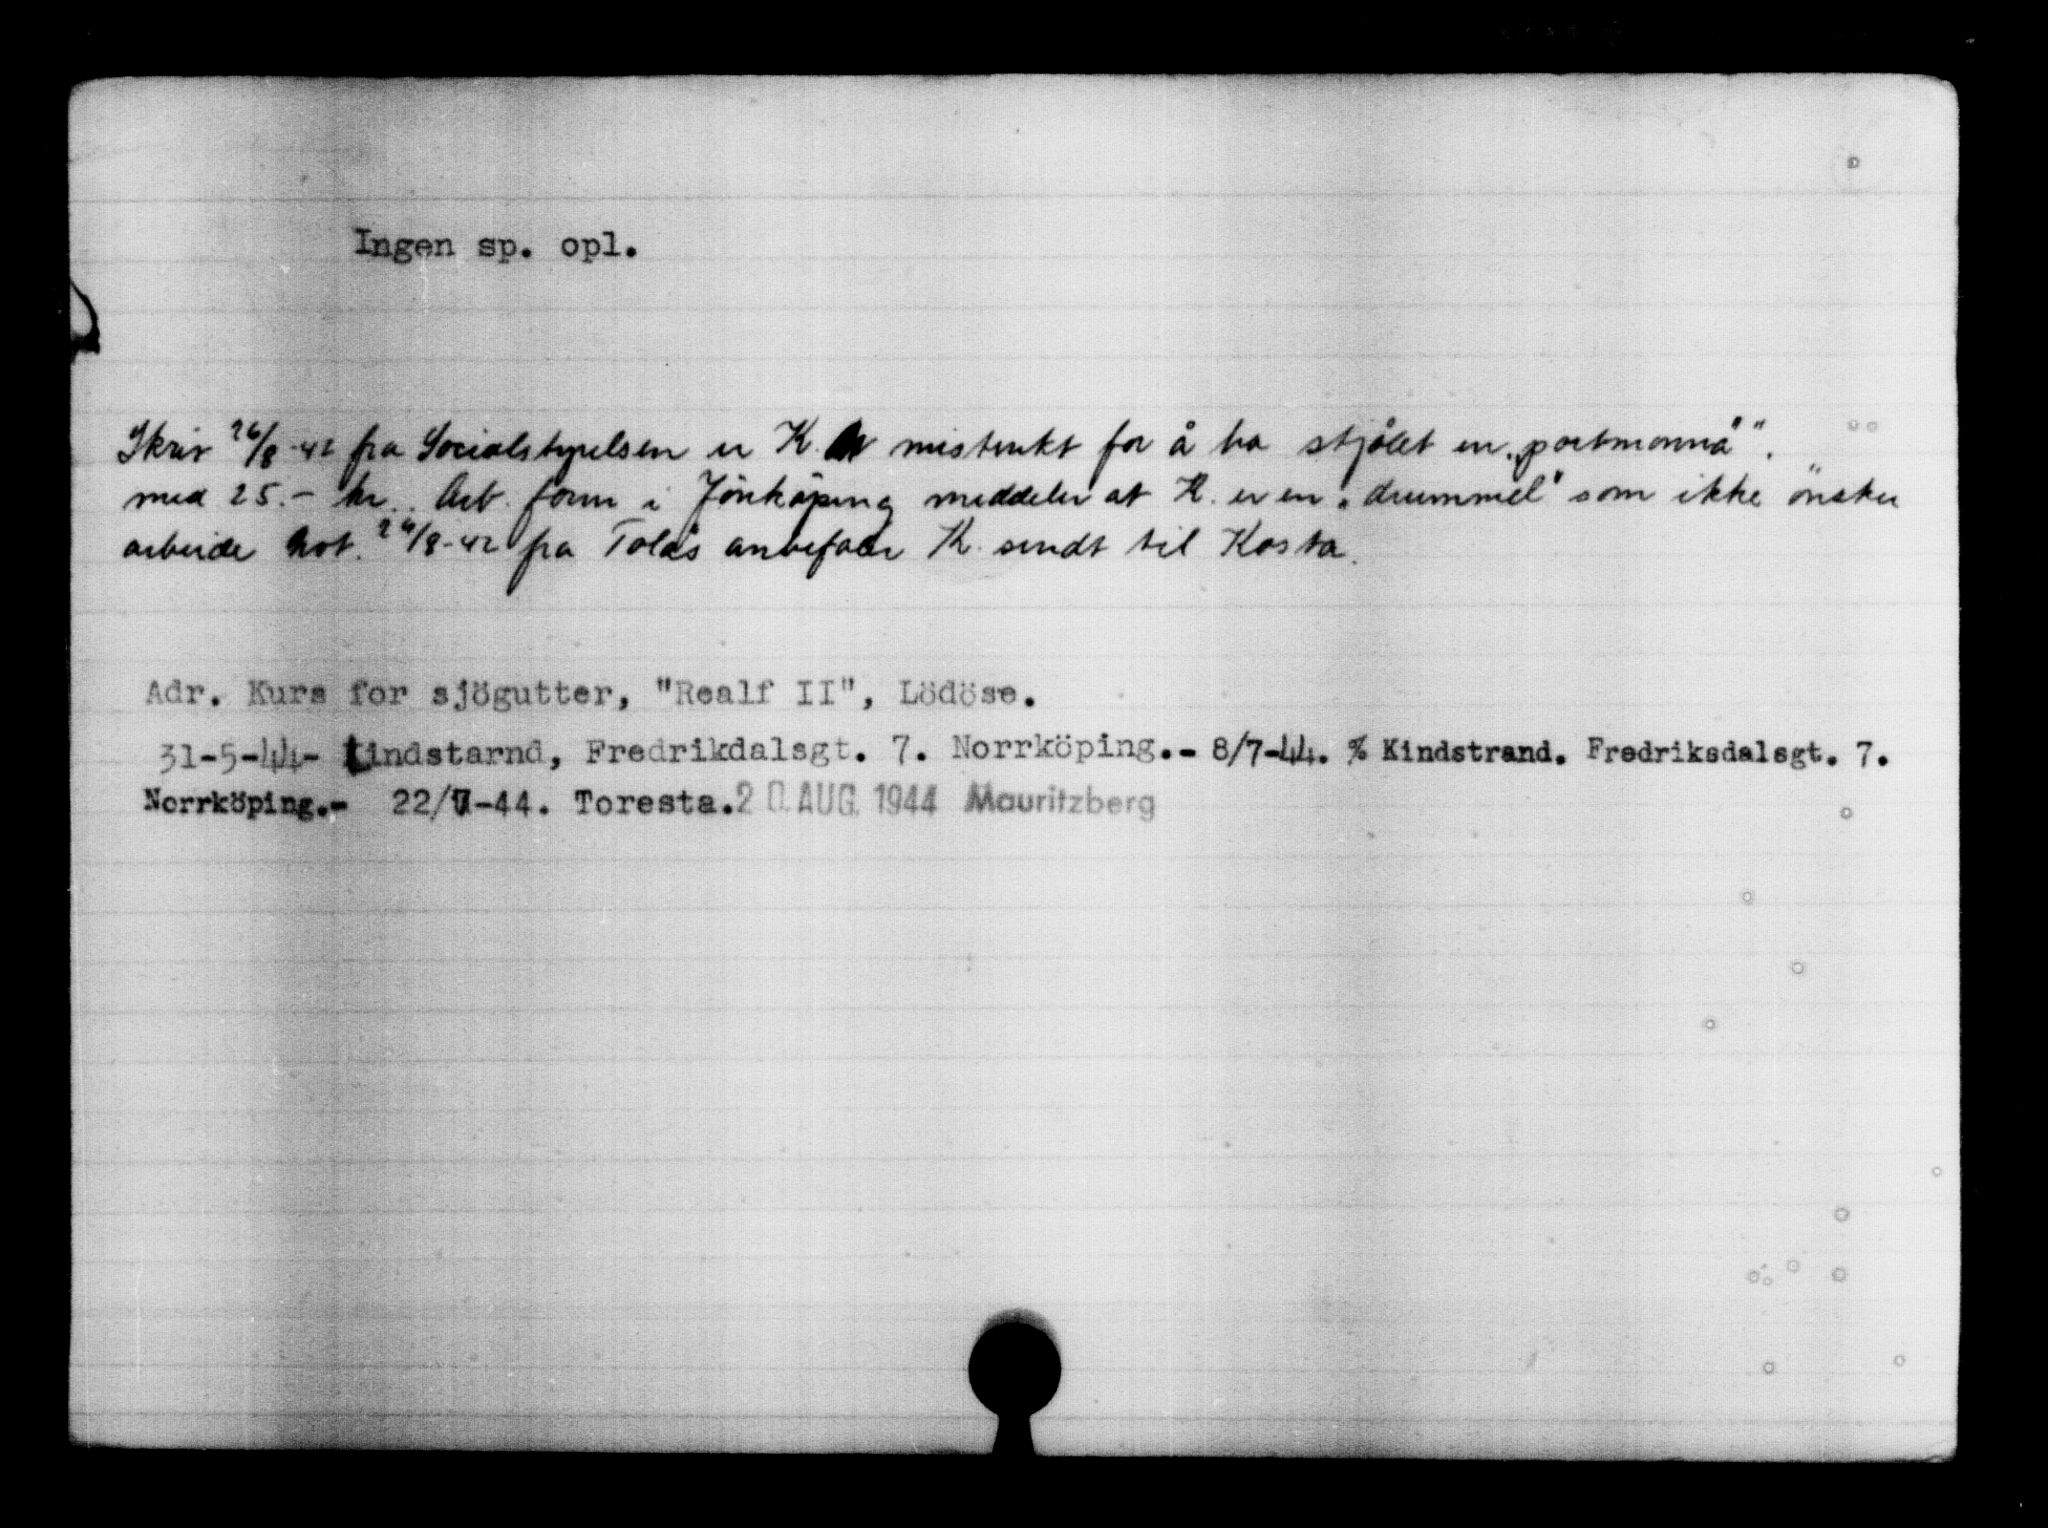 Ingen sp. opl.
Skriv 26/8-42 fra Socialstyrelsen er K. mistenkt for å ha stjålet en „portmonnä".
med 25.- kr.. Arb. form i Jönköping meddeler at K. er en „drummel" som ikke önsker
arbeide Not. 24/8-42 fra Tolås anbefaler K. sendt til Kosta.
Adr. Kurs for sjögutter, "Realf II", Lödöse.
31-5-44- Kindstarnd, Fredrikdalsgt. 7. Norrköping.- 8/7-44. % Kindstrand. Fredriksdalsgt. 7.
Norrköping.- 22/7-44. Toresta. 20. AUG. 1944 Mauritzberg